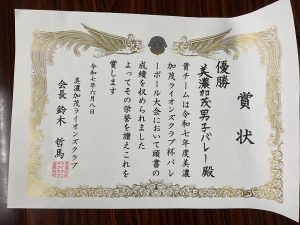 賞状
優勝
美濃加茂男子バレー殿
貴チームは令和七年度美濃
加茂ライオンズクラブ杯バレ
ーボール大会において頭書の
成績を収められました
よってその栄誉を讃えこれを
賞します
令和七年六月八日
美濃加茂ライオンズクラブ
会長 鈴木 哲馬